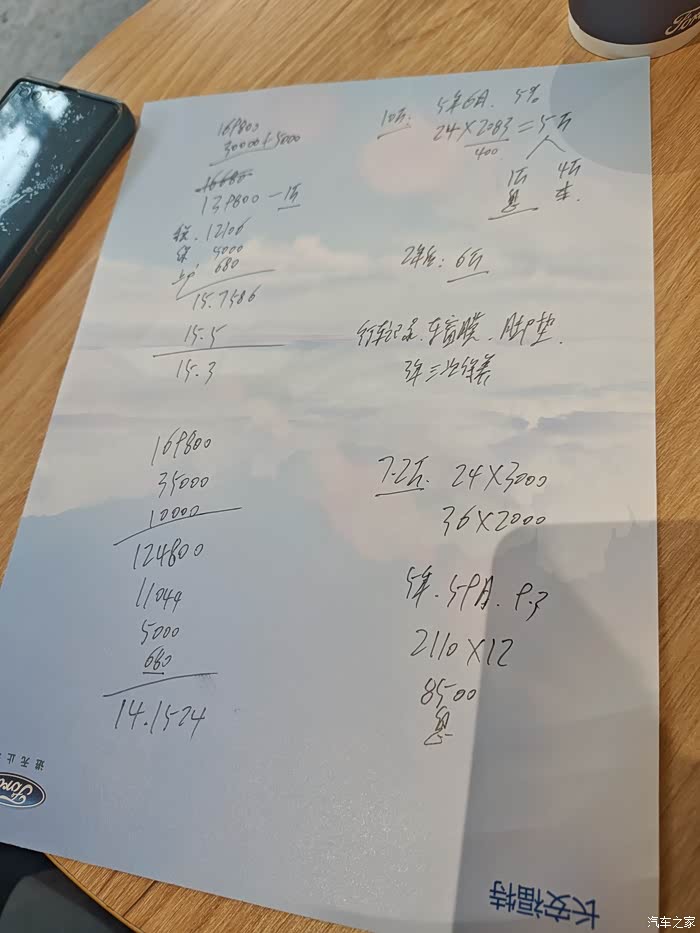 169800
30000+5000
16680
139800-1万
税.12106
保 5000
上户 680
15.7586
15.5
15.3
169800
35000
10000
124800
11044
5000
680
14.1524
10万: 5年6月. 5%
24×2083=5万
400
1万 4万
息 本
2年后: 6万
行车记录.车窗膜.脚垫.
3年三次保养
7.2万. 24×3000
36×2000
5年.59月.9.3
2110×12
8500
息
Ford
进无止
Ford
长安福特
汽车之家